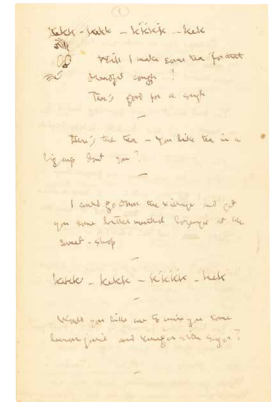 (1)
kekk - kekk - kkkkk - kek
Will I make some tea for that
dreadful cough ?
Tea's good for a cough
—
Here's the tea — You like tea in a
big cup don't you ?
—
I could go down the village and get
you some butter menthol lozenges at the
sweet-shop
—
kekkk - kekk - kkkkk - kek
—
Would you like me to mix you some
lemon juice and vinegar with sugar ?
—